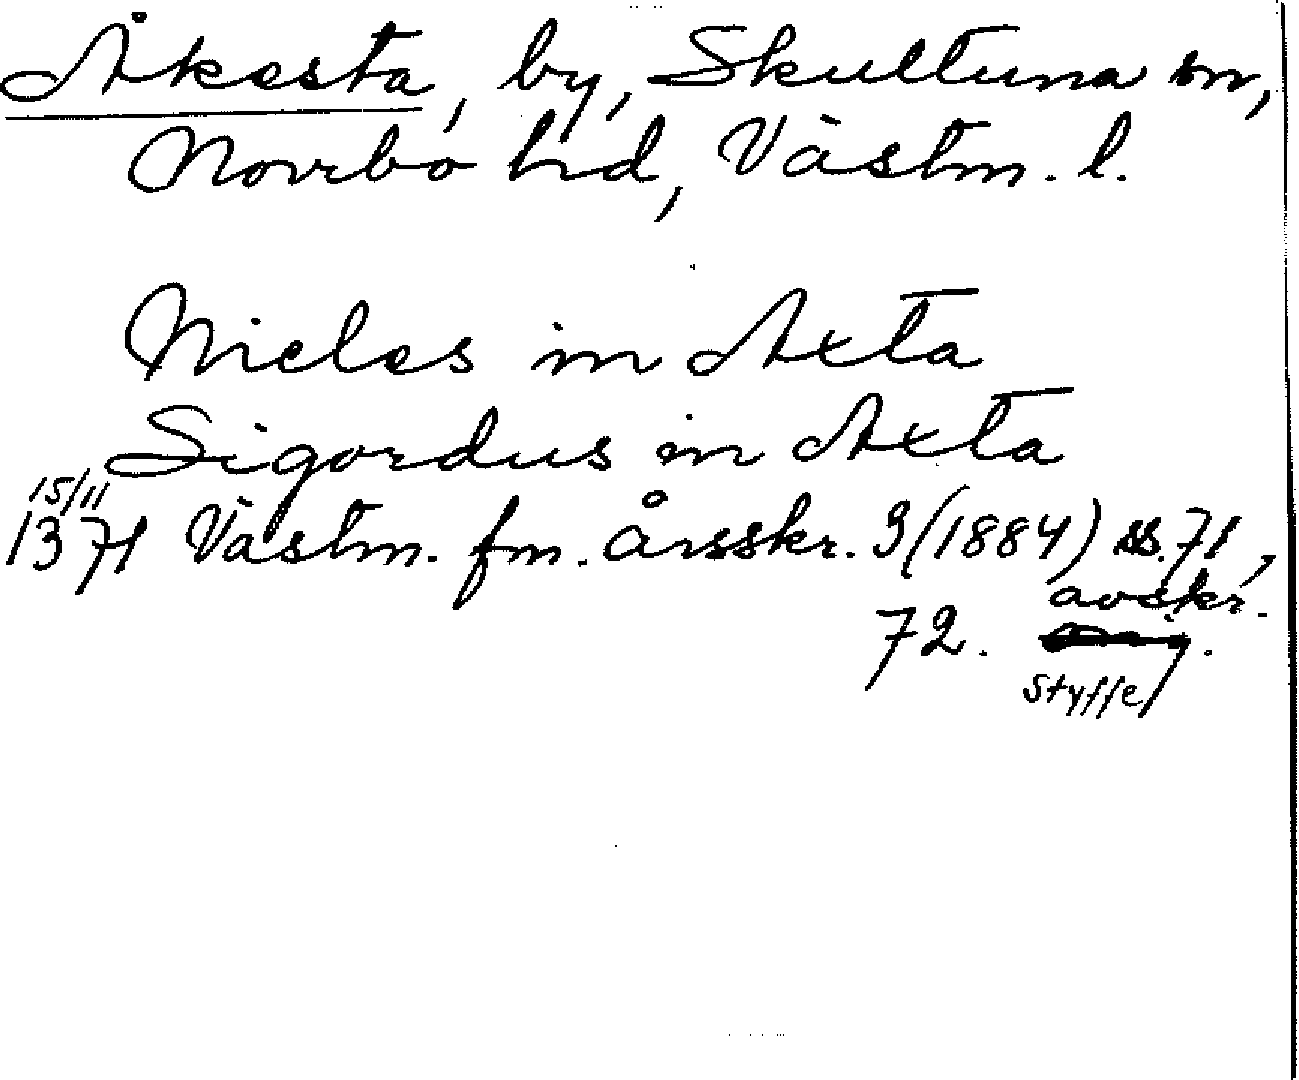 Åkesta, by, Skultuna sn,
Norrbo hd, Västm. l.
Nieles in Axta
Sigordus in Axta
15/11
1371 Västm. fm. årsskr. 3 (1884) ss. 71,
72. avskr.
Styffe